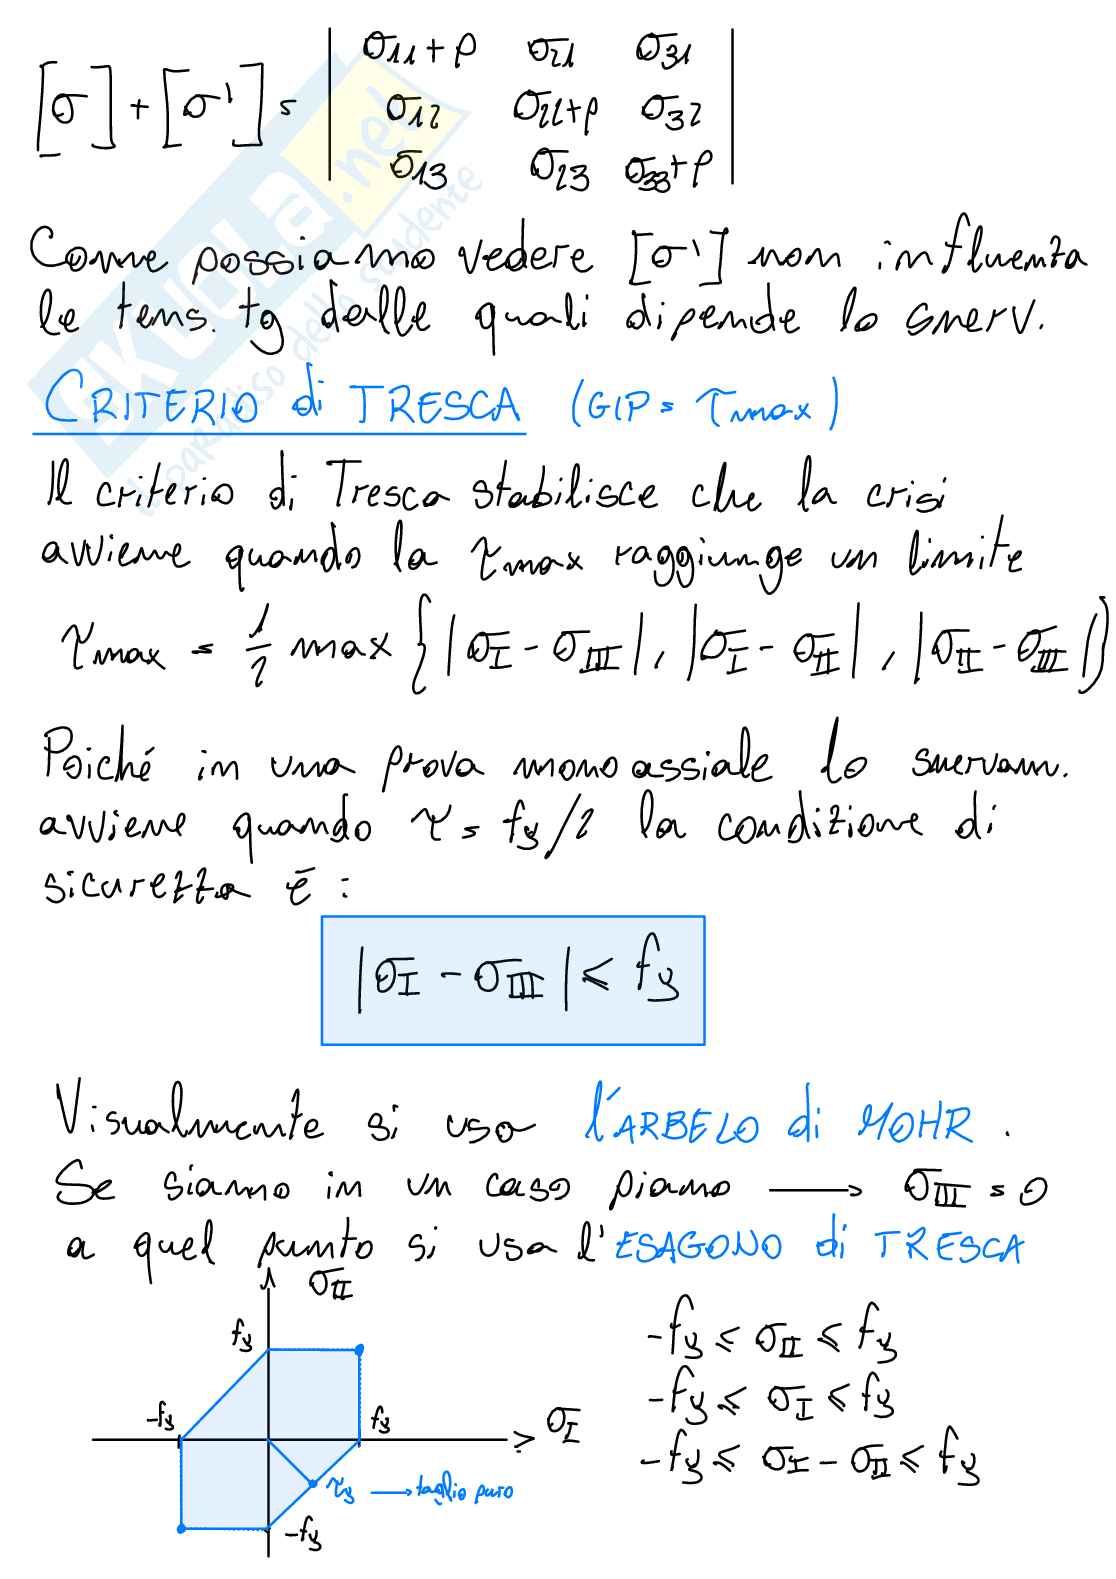 [σ] + [σ'] = | σ11+p σ21 σ31 |
| σ12 σ22+p σ32 |
| σ13 σ23 σ33+p |
Come possiamo vedere [σ'] non influenza
le tens. tg dalle quali dipende lo snerv.
CRITERIO di TRESCA (GIP = τmax)
Il criterio di Tresca stabilisce che la crisi
avviene quando la τmax raggiunge un limite
τmax = 1/2 max {|σI - σIII|, |σI - σII|, |σII - σIII|}
Poiché in una prova monoassiale lo snervam.
avviene quando τ = fy/2 la condizione di
sicurezza è :
|σI - σIII| ≤ fy
Visualmente si usa l'ARBELO di MOHR.
Se siamo in un caso piano → σIII = 0
a quel punto si usa l'ESAGONO di TRESCA
σII
fy
-fy
fy
σI
τy → taglio puro
-fy
-fy ≤ σII ≤ fy
-fy ≤ σI ≤ fy
-fy ≤ σI - σII ≤ fy
SKUOLA.net
il paradiso dello studente